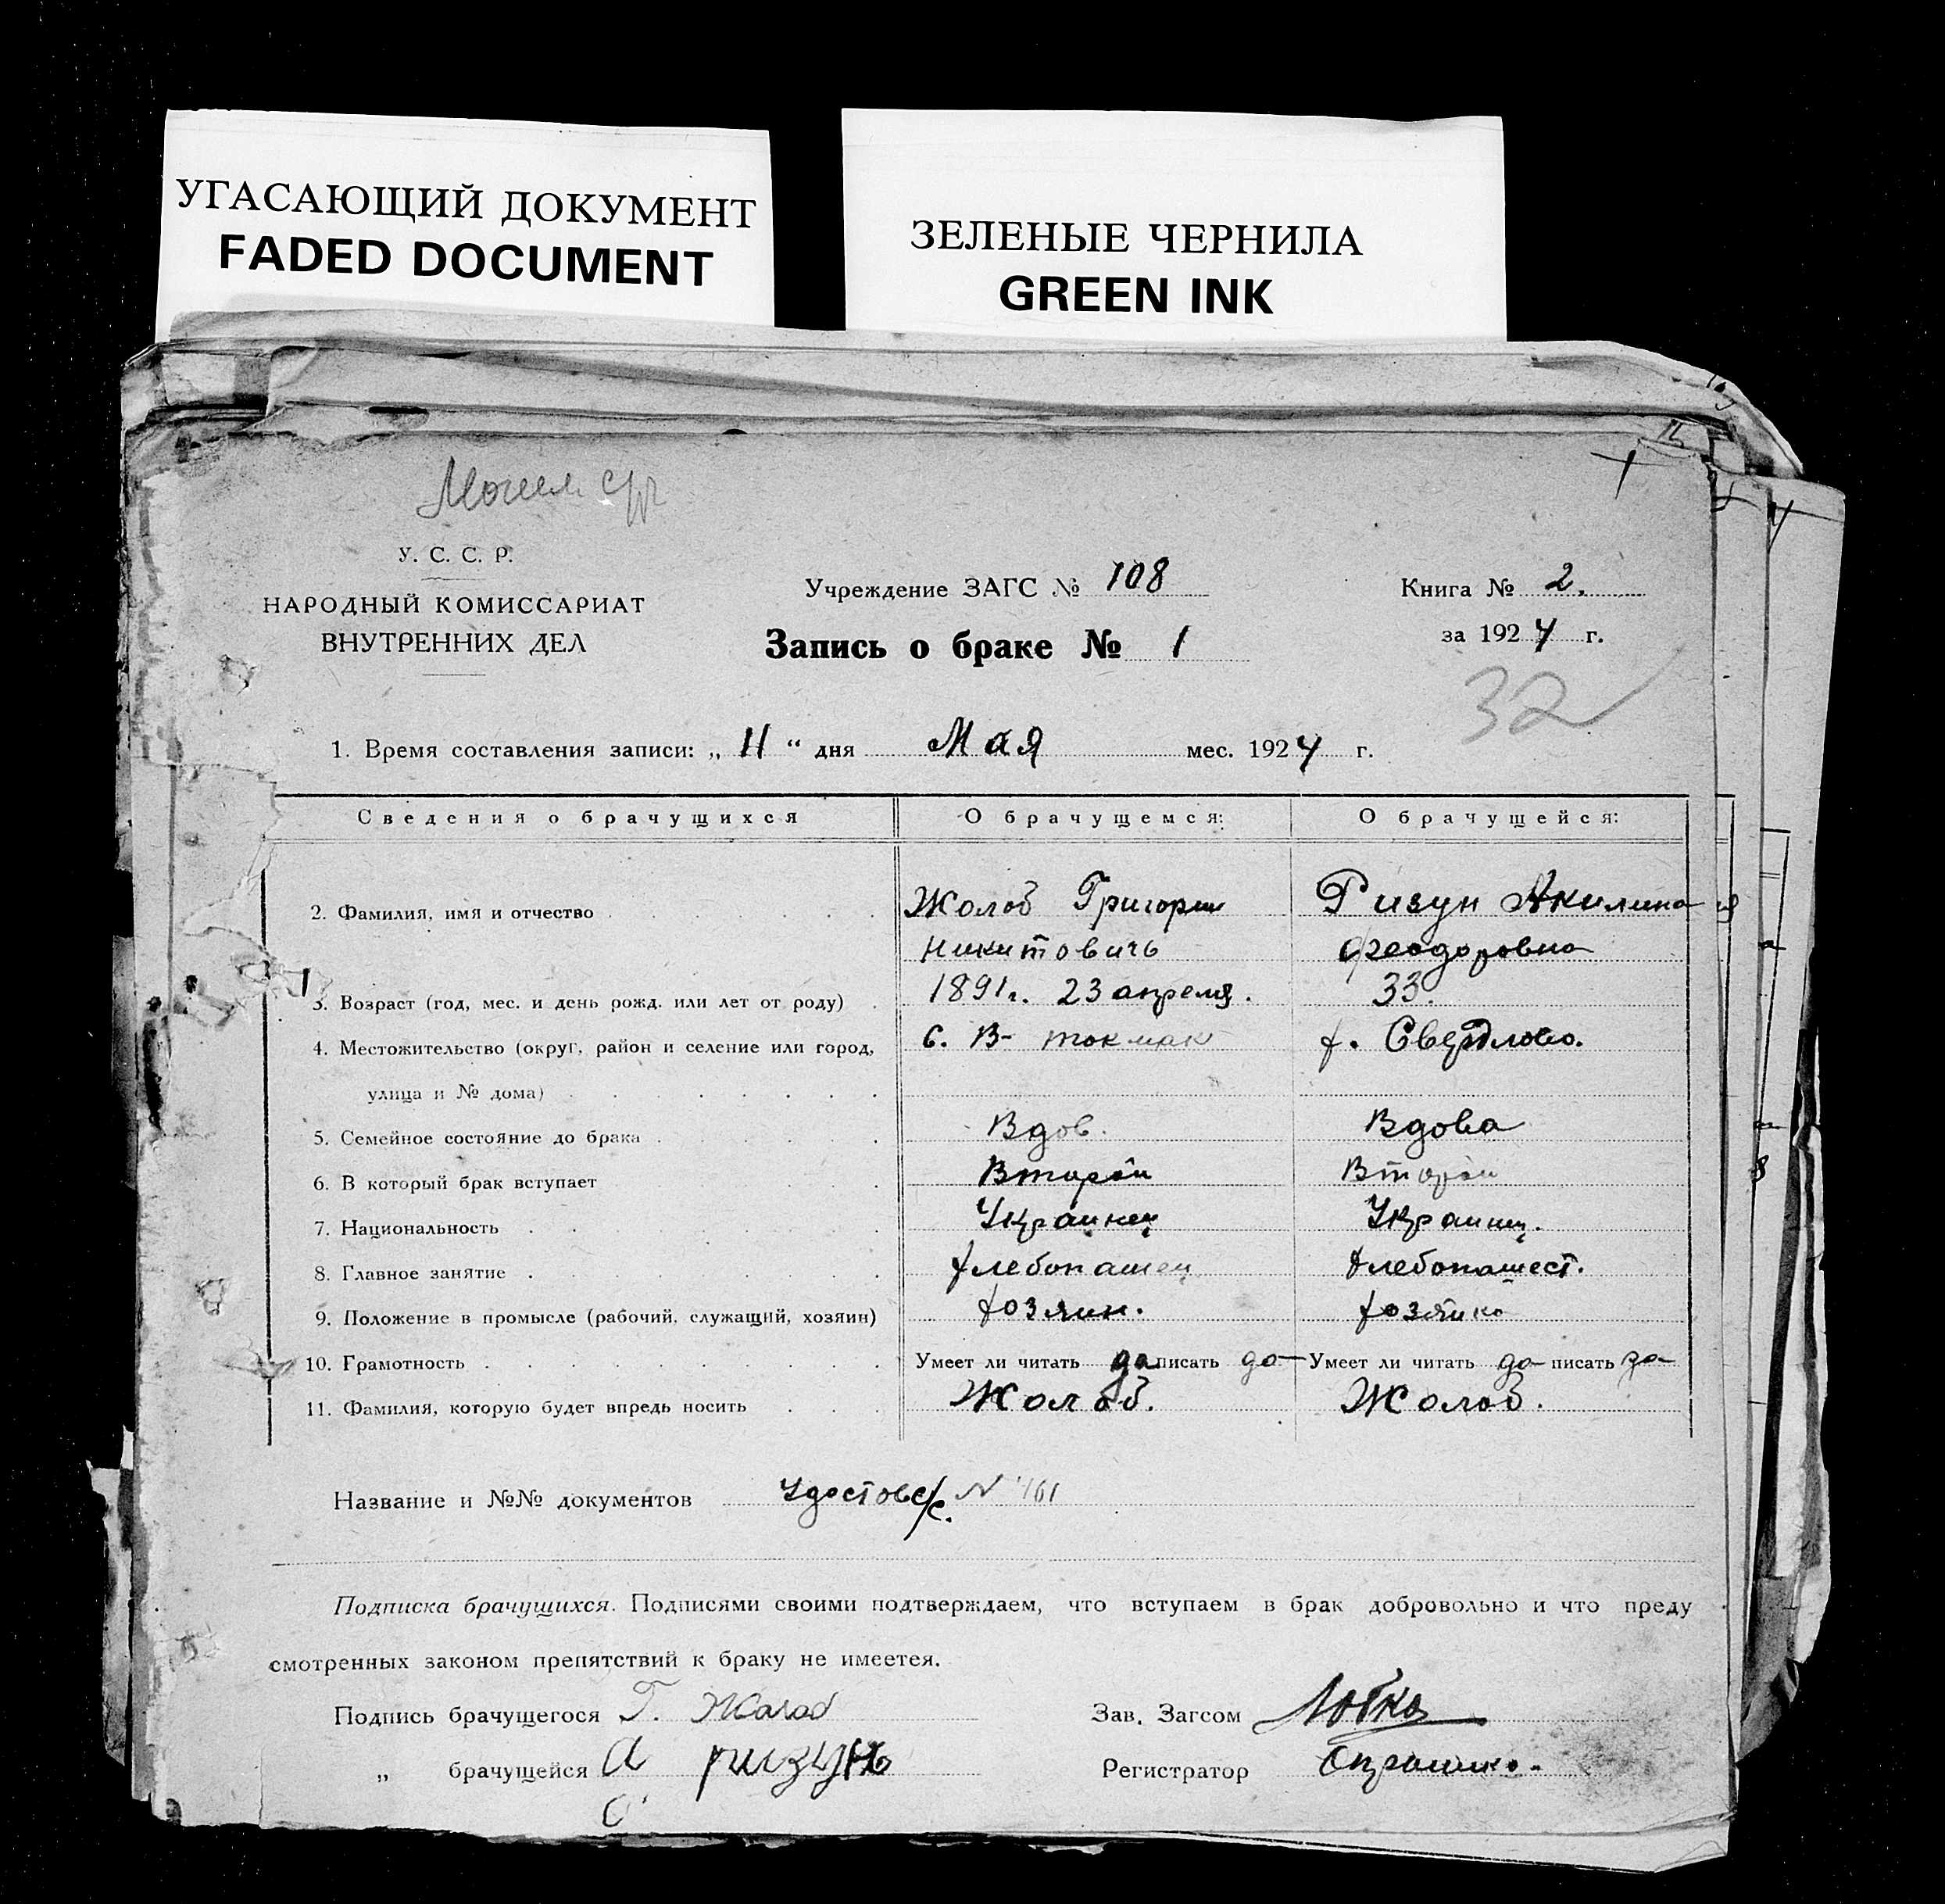 УГАСАЮЩИЙ ДОКУМЕНТ
FADED DOCUMENT
ЗЕЛЕНЫЕ ЧЕРНИЛА
GREEN INK
У. С. С. Р.
НАРОДНЫЙ КОМИССАРИАТ
ВНУТРЕННИХ ДЕЛ
Учреждение ЗАГС № 108
Запись о браке № 1
Книга № 2.
за 1924 г.
32
1. Время составления записи: „ 11 “ дня Мая мес. 1924 г.
Сведения о брачущихся О брачущемся: О брачущейся:
2. Фамилия, имя и отчество Жолоб Григории Ризун Акилина
Никитовичь Феодоровна
3. Возраст (год, мес. и день рожд. или лет от роду) 1891 г. 23 апреля. 33.
4. Местожительство (округ, район и селение или город, С. В- токмак х. Свердлово.
улица и № дома)
5. Семейное состояние до брака Вдов. Вдова
6. В который брак вступает Второй Второй
7. Национальность Украинец Украинц.
8. Главное занятие хлебопашец хлебопашест.
9. Положение в промысле (рабочий, служащий, хозяин) хозяин. хозяйка
10. Грамотность Умеет ли читать да писать да Умеет ли читать да писать да
11. Фамилия, которую будет впредь носить Жолоб. Жолоб.
Название и №№ документов Удостов с/с. N 161
Подписка брачущихся. Подписями своими подтверждаем, что вступаем в брак добровольно и что преду
смотренных законом препятствий к браку не имеется.
Подпись брачущегося Г. Жолоб Зав. Загсом
„ брачущейся А ризунь Регистратор